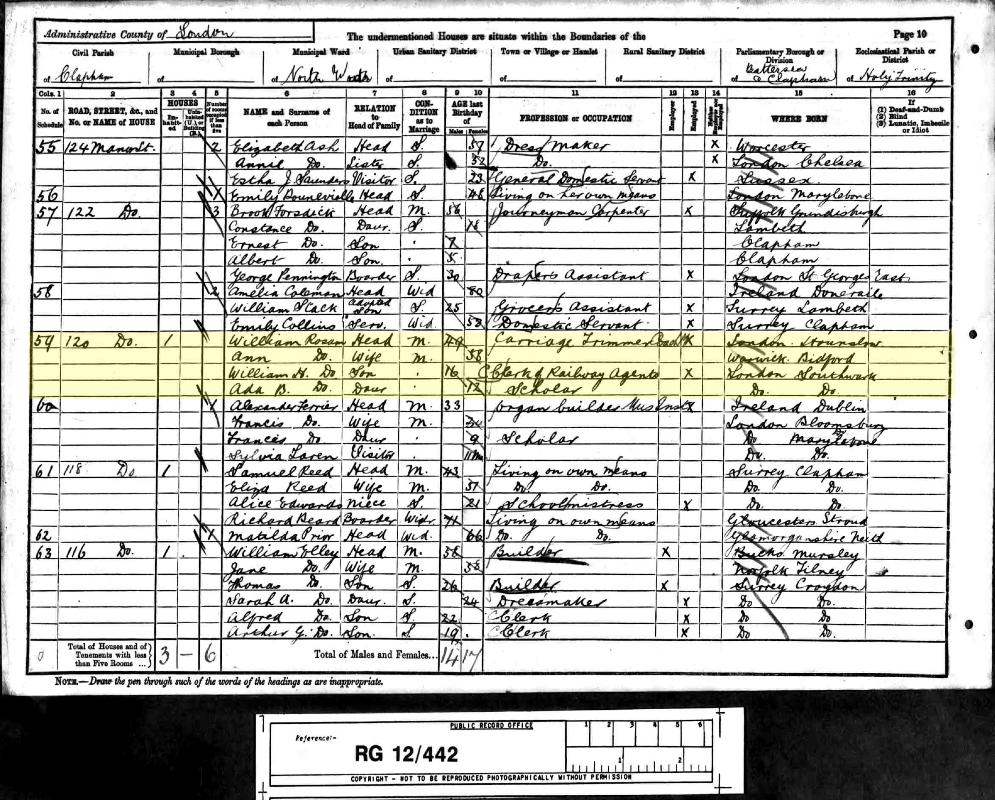 Administrative County of London
The undermentioned Houses are situate within the Boundaries of the
Page 10
Civil Parish of Clapham
Municipal Borough of
Municipal Ward of North Ward
Urban Sanitary District of
Town or Village or Hamlet of
Rural Sanitary District of
Parliamentary Borough or Division of Battersea & Clapham
Ecclesiastical Parish or District of Holy Trinity
Cols. 1 2 3 4 5 6 7 8 9 10 11 12 13 14 15 16
No. of Schedule
ROAD, STREET, &c., and No. or NAME of HOUSE
HOUSES
NAME and Surname of each Person
RELATION to Head of Family
CONDITION as to Marriage
AGE last Birthday of
Males Females
PROFESSION or OCCUPATION
Employer
Employed
WHERE BORN
If (1) Deaf-and-Dumb (2) Blind (3) Lunatic, Imbecile or Idiot
55 124 2 Elizabeth Ash Head S. 57 Dress Maker X Worcester
Annie Do. Sister S. 52 Do. X London Chelsea
J. Saunders Visitor S. 23 General Domestic Servant X Sussex
56 Emily Head S. 46 Living on her own means London Marylebone
57 122 Do. 3 Brook Head M. 56 Journeyman Carpenter X Suffolk Grundisburgh
Constance Do. Daur. S. 18 Lambeth
Ernest Do. Son 7 Clapham
Albert Do. Son 5 Clapham
George Pennington Boarder S. 30 Drapers Assistant X London St George East
58 2 Amelia Coleman Head Wid 80 Ireland Doneraile
William Stack Adopted Son S. 25 Grocers Assistant X Surrey Lambeth
Emily Collins Serv. Wid. 50 Domestic Servant X Surrey Clapham
59 120 Do. 1 William Rosam Head M. 49 Carriage Trimmer X London Hounslow
Ann Do. Wife M. 58 Warwick Bidford
William H. Do Son 16 Clerk of Railway Agents X London Southwark
Ada B. Do. Daur 12 Scholar Do. Do.
60 Alexander Ferrier Head M. 33 Organ builder X Ireland Dublin
Francis Do. Wife M. London Bloomsbury
Frances Do Daur 9 Scholar Do Marylebone
Sylvia Laren Visitor Do. Do.
61 118 Do 1 Samuel Reed Head M. 43 Living on own means Surrey Clapham
Eliza Reed Wife M. 51 Do. Do. Do. Do.
Alice Edwards Niece S. 21 Schoolmistress X Do Do
Richard Beard Boarder Widr. 71 Living on own means Gloucesters Stroud
62 Matilda Prior Head Wid. 66 Do. Do. Glamorganshire Neith
63 116 Do. 1 William Elley Head M. 58 Builder X Bucks Mursley
Jane Do. Wife M. 58 Norfolk Tilney
Thomas Do. Son S. 26 Builder X Surrey Croydon
Sarah A. Do. Daur. S. 24 Dressmaker X Do Do.
Alfred Do. Son S. 22 Clerk X Do Do.
Arthur G. Do. Son. S. 19 Clerk X Do Do.
Total of Houses and of Tenements with less than Five Rooms ... 3 — 6
Total of Males and Females... 14 17
NOTE.—Draw the pen through such of the words of the headings as are inappropriate.
PUBLIC RECORD OFFICE
1 2 3 4 5 6
Reference:-
RG 12/442
1 2
COPYRIGHT - NOT TO BE REPRODUCED PHOTOGRAPHICALLY WITHOUT PERMISSION